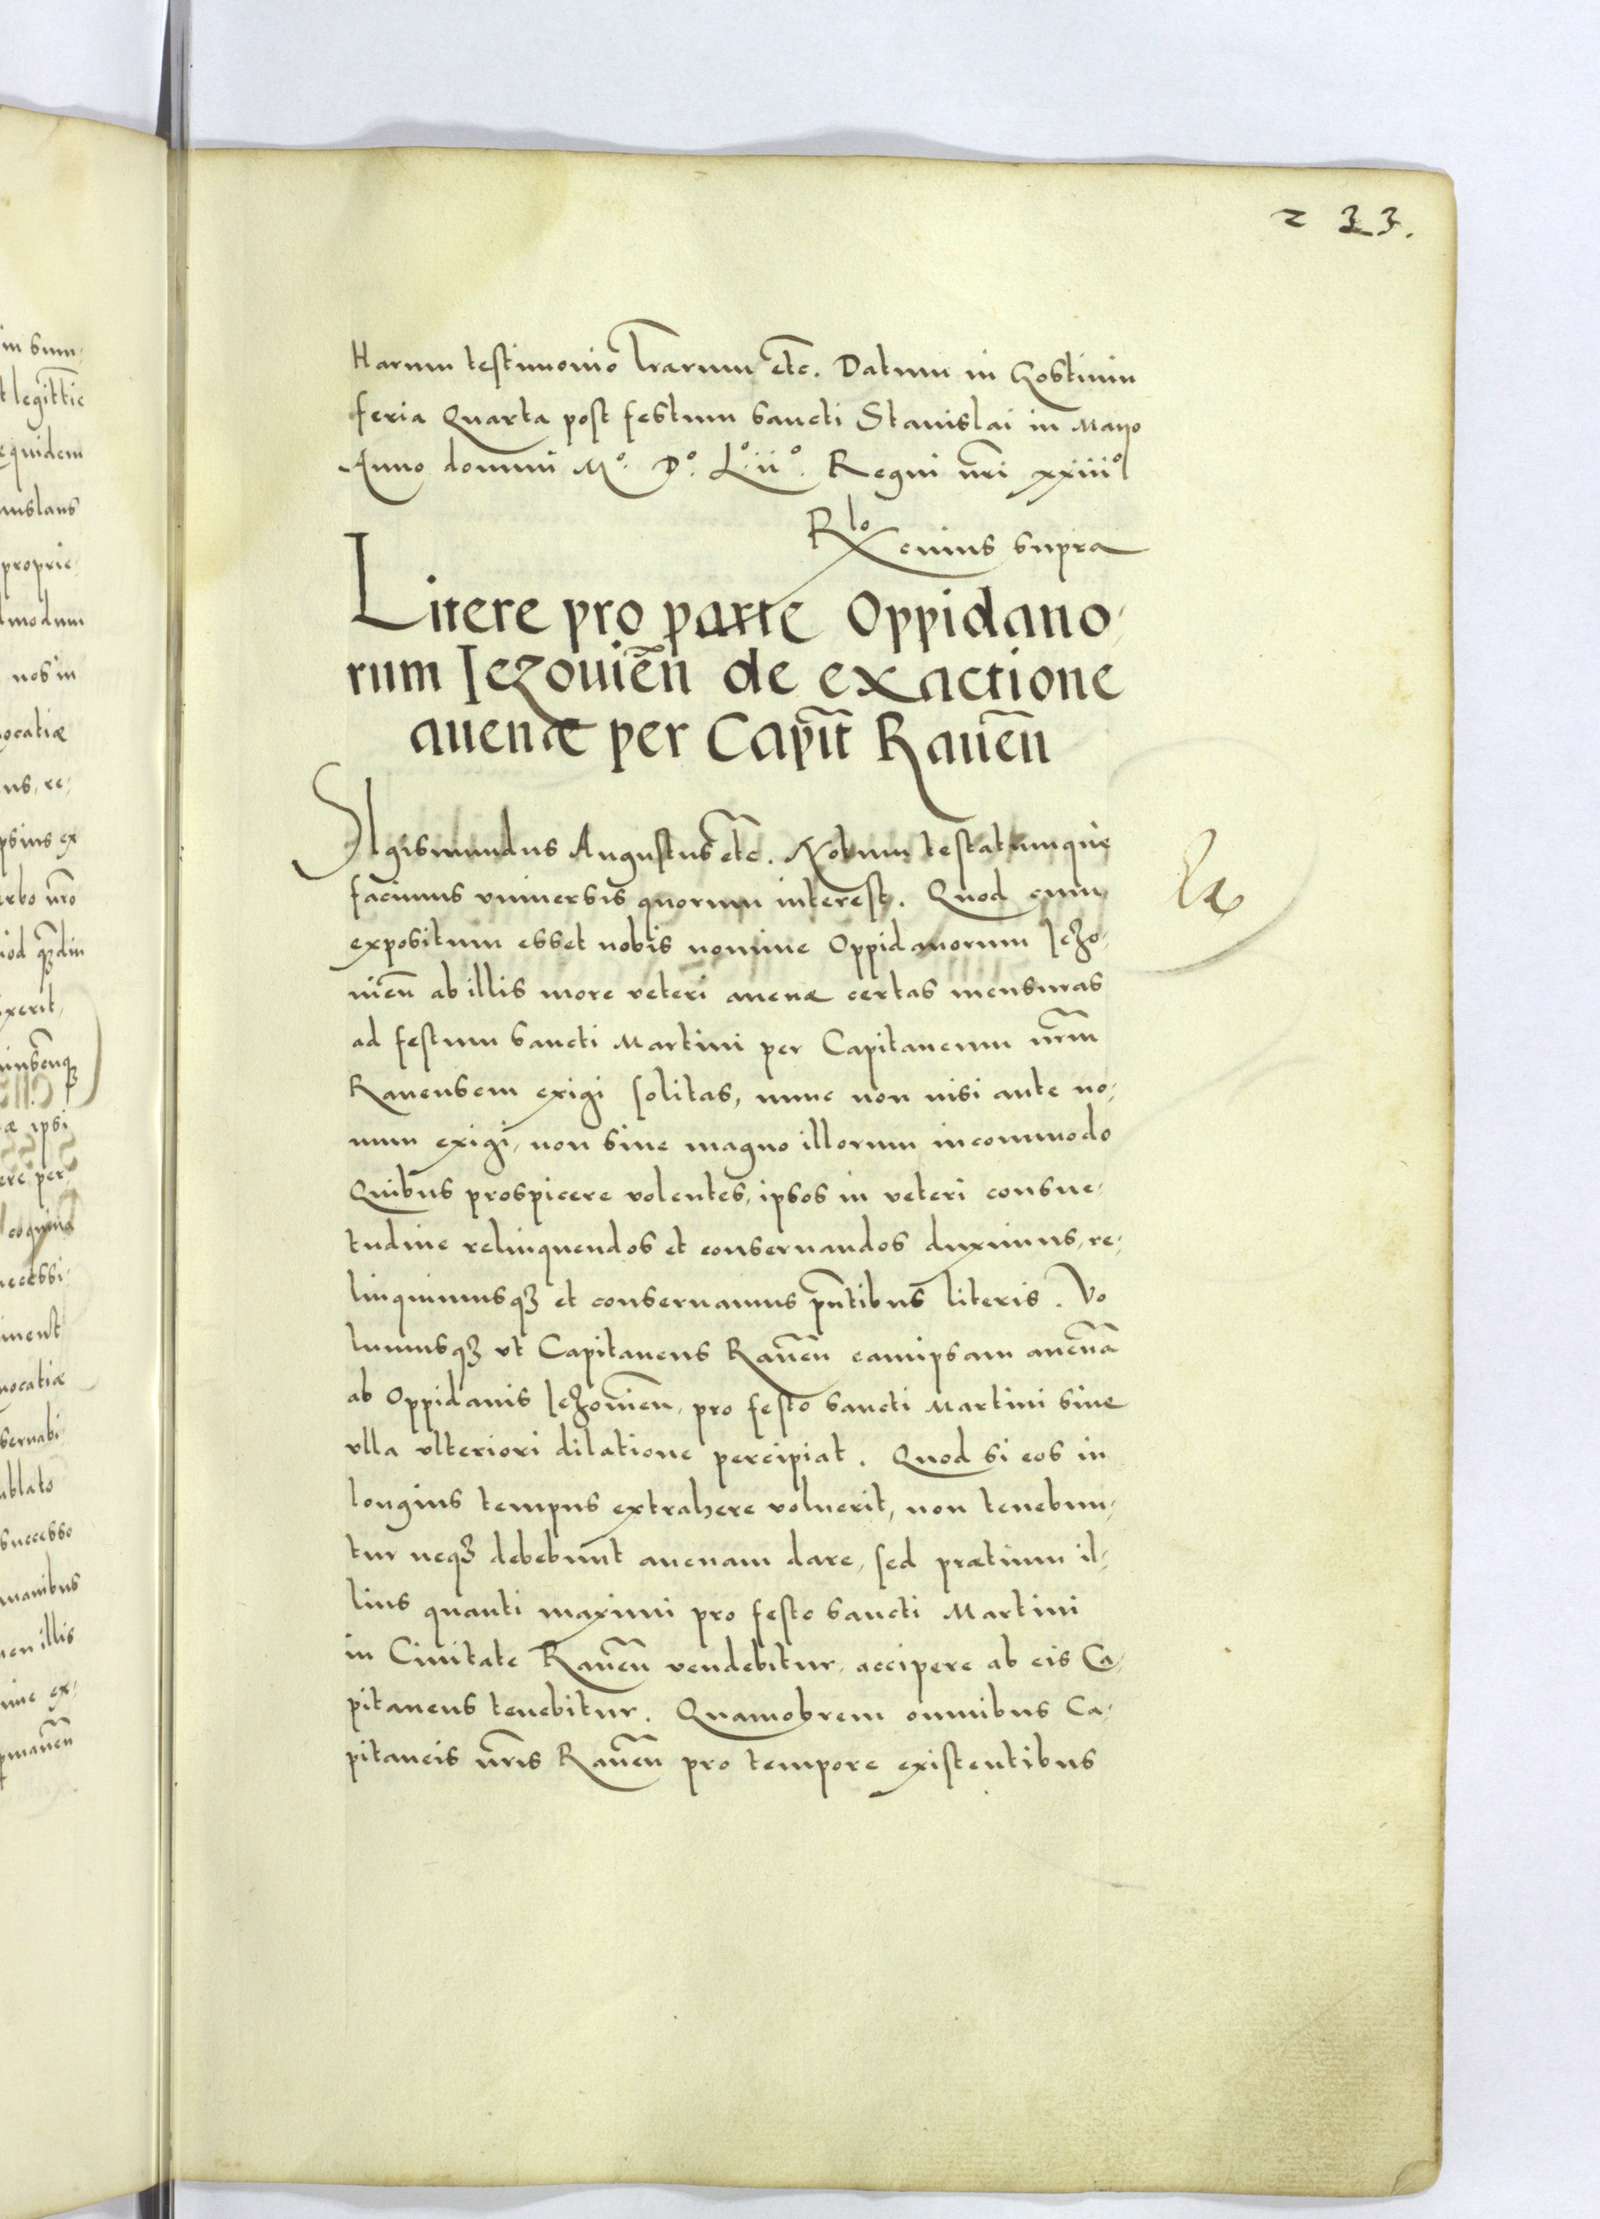 233.
Harum testimonio lrarum etc. Datum in Gostinin
feria Quarta post festum sancti Stanislai in Mayo
Anno domini Mº. Dº. Lº. iiº. Regni nri xxiiiº
Rlo cuius supra
Litere pro parte Oppidano,
rum Jezouien de exactione
auenæ per Capit Rauen
SIgismundus Augustus etc. Notum testatumque
facimus vniuersis quorum interest. Quod cum
expositum esset nobis nomine Oppidanorum Jezo,
uien ab illis more veteri auenæ certas mensuras
ad festum sancti Martini per Capitaneum nrm
Rauensem exigi solitas, nunc non nisi ante no,
uum exigi, non sine magno illorum incommodo
Quibus prospicere volentes, ipsos in veteri consue,
tudine relinquendos et conseruandos duximus, re,
linquimusqз et conseruamus pntibus literis. Vo
lumusqз vt Capitaneus Rauen eamipsam auenā
ab Oppidanis Jezouien, pro festo sancti Martini sine
vlla vlteriori dilatione percipiat. Quod si eos in
longius tempus extrahere voluerit, non tenebun,
tur neqз debebunt auenam dare, sed prætium il,
lius quanti maximi pro festo sancti Martini
in Ciuitate Rauen vendebitur, accipere ab eis Ca,
pitaneus tenebitur. Quamobrem omnibus Ca,
pitaneis nris Rauen pro tempore existentibus